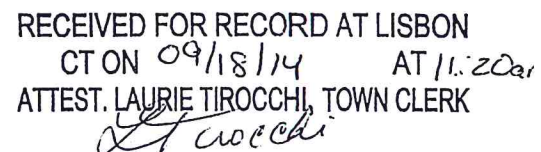 RECEIVED FOR RECORD AT LISBON
CT ON 09/18/14 AT 11:20am
ATTEST. LAURIE TIROCCHI, TOWN CLERK
LTirocchi